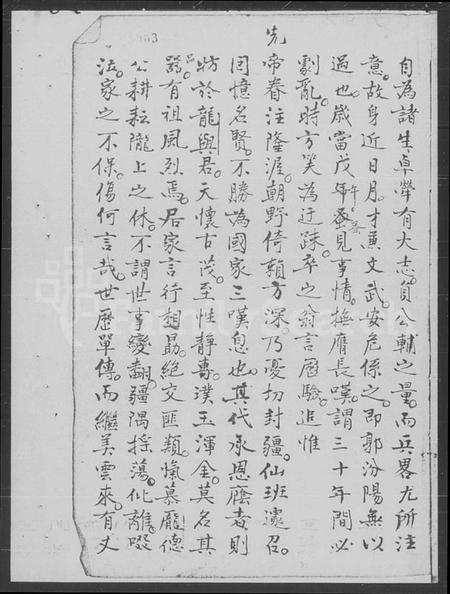 自為諸生卓犖有大志。負公輔之量。而兵畧尤所注
意。故身近日月。才兼文武。安危係之。即郭汾陽無以
過也。歲當戊年午蚤見事情。撫膺長嘆。謂三十年間必
劇亂。時方笑為迂疎。卒之翁言歷驗。追惟
先
帝眷注隆渥。朝野倚賴方深。乃憂切封疆。仙班遽召。
回憶名賢。不勝為國家三嘆息也。其代承恩廕者則
昉於龍與君。天懷古茂。至性靜專。璞玉渾金。莫名其
器。有祖風烈焉。居家言行相勗。絕交匪類。慨慕龐德
公耕耘隴上之休。不謂世事變翻。疆隅搖蕩。仳離啜
泣。家之不保。傷何言哉。世歷單傳。而繼美雲來。有丈